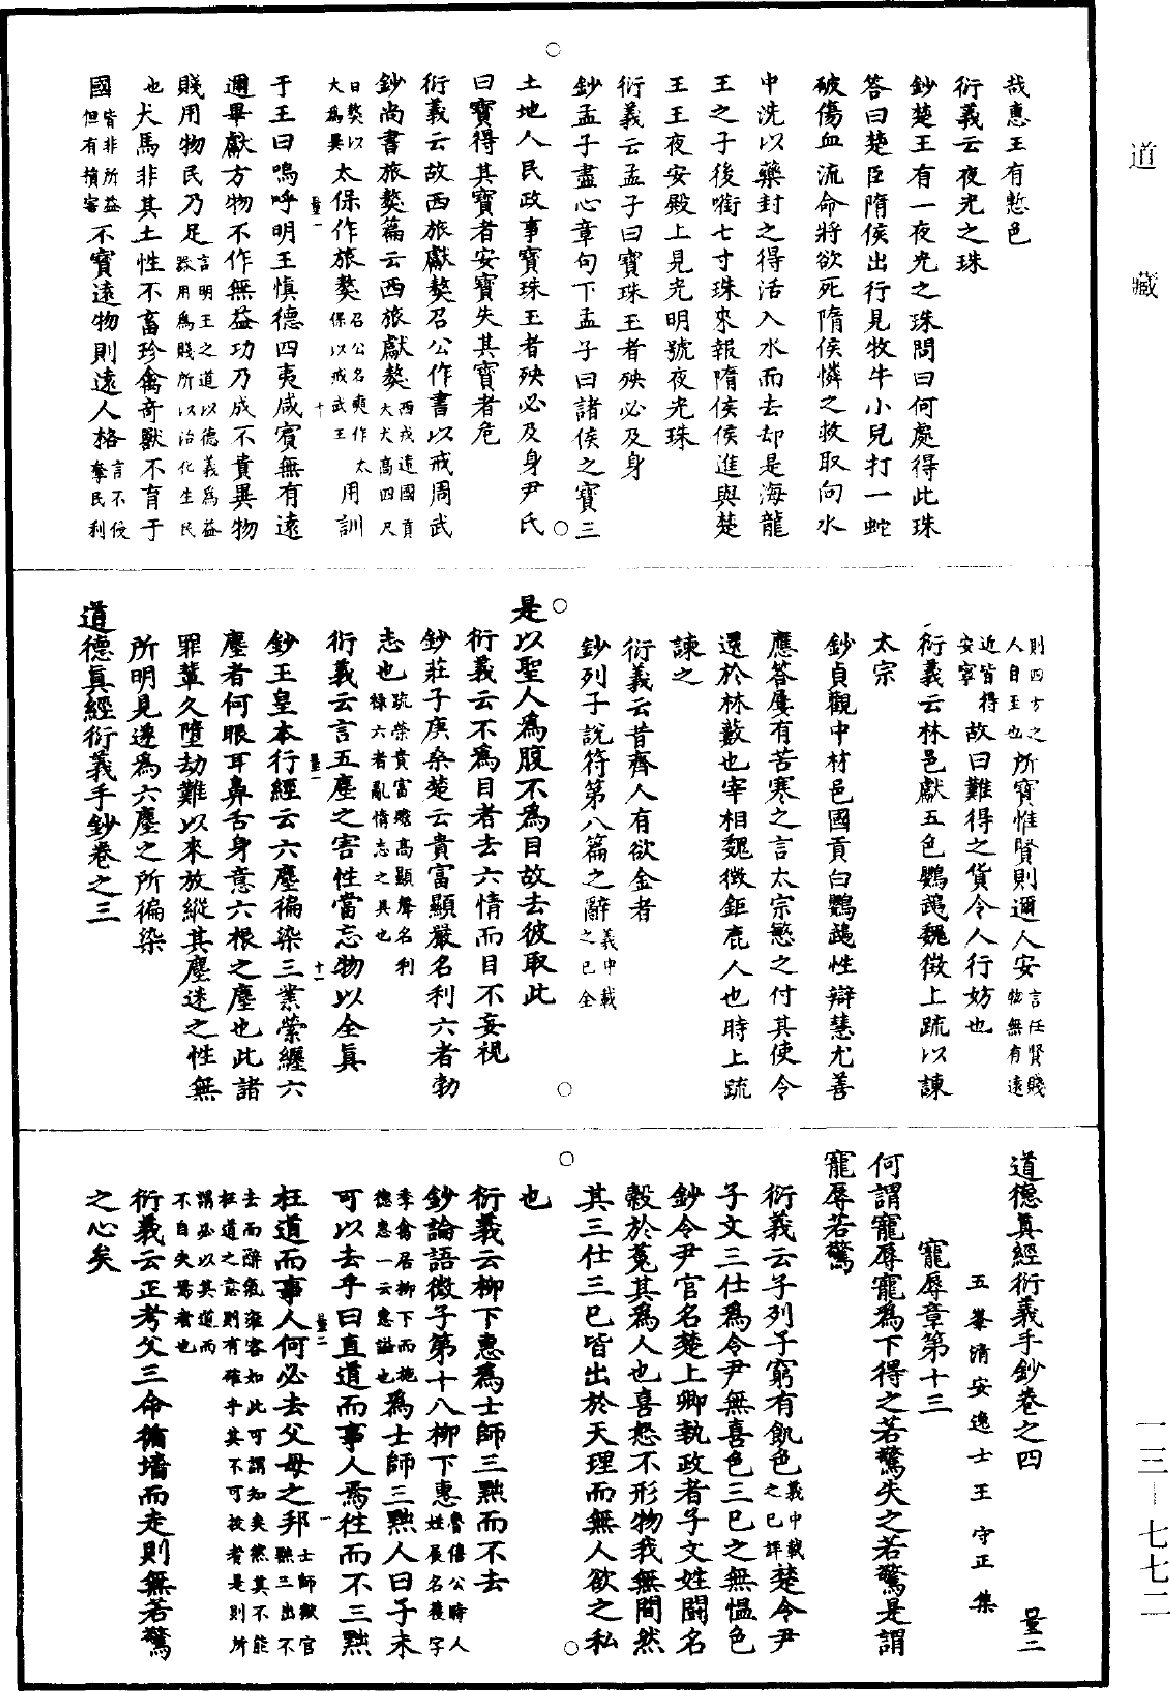 道藏
一三—七七二
哉惠王有慙色
衍義云夜光之珠
鈔楚王有一夜光之珠問曰何處得此珠
答曰楚臣隋侯出行見牧牛小兒打一蛇
破傷血流命將欲死隋侯憐之救取向水
中洗以藥封之得活入水而去却是海龍
王之子後啣七寸珠來報隋侯侯進與楚
王王夜安殿上見光明號夜光珠
衍義云孟子曰寶珠王者殃必及身
鈔孟子盡心章句下孟子曰諸侯之寶三
土地人民政事寶珠王者殃必及身尹氏
曰寶得其寶者安寶失其寶者危
衍義云故西旅獻獒召公作書以戒周武
鈔尚書旅獒篇云西旅獻獒西戎遠國貢大犬高四尺
曰獒以大為異太保作旅獒召公名奭作太保以戒武王用訓
量一 十
于王曰嗚呼明王慎德四夷咸賓無有遠
邇畢獻方物不作無益功乃成不貴異物
賤用物民乃足言明王之道以德義為益器用為賤所以治化生民
也犬馬非其土性不畜珍禽奇獸不育于
國皆非所益但有損害不寶遠物則遠人格言不侵奪民利
則四方之人自至也所寶惟賢則邇人安言任賢賤物無有遠
近皆得安寧故曰難得之貨令人行妨也
衍義云林邑獻五色鸚鵡魏徵上疏以諫
太宗
鈔貞觀中材邑國貢白鸚鵡性辯慧尤善
應答屢有苦寒之言太宗慜之付其使令
還於林藪也宰相魏徵鉅鹿人也時上疏
諫之
衍義云昔齊人有欲金者
鈔列子說符第八篇之辭義中載之已全
是以聖人為腹不為目故去彼取此
衍義云不為目者去六情而目不妄視
鈔莊子庚桑楚云貴富顯嚴名利六者勃
志也疏榮貴富贍高顯聲名利祿六者亂情志之具也
衍義云言五塵之害性當忘物以全眞
量一 十一
鈔玉皇本行經云六塵徧染三業縈纏六
塵者何眼耳鼻舌身意六根之塵也此諸
罪輩久墮劫難以來放縱其塵迷之性無
所明見遂為六塵之所徧染
道德眞經衍義手鈔卷之三
道德眞經衍義手鈔卷之四 量二
五峯清安逸士王守正集
寵辱章第十三
何謂寵辱寵為下得之若驚失之若驚是謂
寵辱若驚
衍義云子列子窮有飢色義中載之已詳楚令尹
子文三仕為令尹無喜色三已之無慍色
鈔令尹官名楚上卿執政者子文姓鬭名
穀於菟其為人也喜怒不形物我無間然
其三仕三已皆出於天理而無人欲之私
也
衍義云柳下惠為士師三黜而不去
鈔論語微子第十八柳下惠魯僖公時人姓展名獲字
季禽居柳下而施德惠一云惠謚也為士師三黜人曰子未
可以去乎曰直道而事人焉往而不三黜
量二 一
枉道而事人何必去父母之邦士師獄官黜三出不
去而辭氣雍容如此可謂知矣然其不能枉道之意則有確乎其不可拔者是則所
謂必以其道而不自失焉者也
衍義云正考父三命循墻而走則無若驚
之心矣